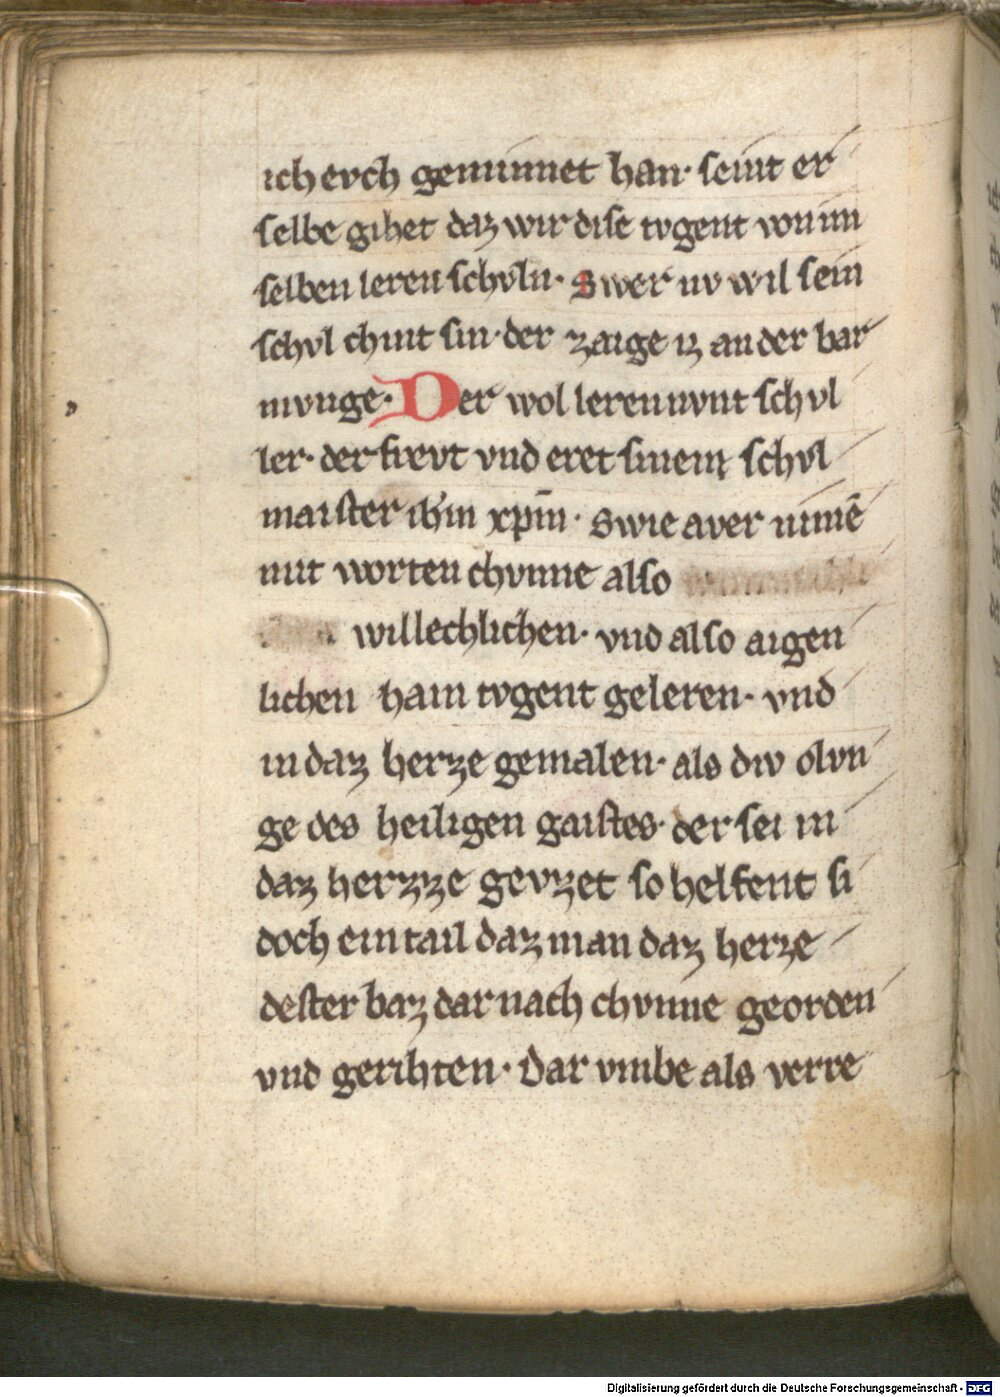 ich evch geminnet han· seint er
selbe gihet daz wir dise tvgent von im
selben leren schvln· Swer nv wil sein
schvl chint sin· der zaige iz an der bar
mvnge· Der wol lerenvnt schvl
ler· der frevt vnd eret sinem schvl
maister ih̄m xp̄m· Swie aver nimē
mit worten chvnne also
willechlichen· vnd also aigen
lichen hain tvgent geleren· vnd
in daz herze gemalen· als div olvn
ge des heiligen gaistes· der sei in
daz herzze gevzet so helfent si
doch ein tail daz man daz herze
dester baz dar nach chvnne georden
vnd gerihten· Dar vmbe als verre
Digitalisierung gefördert durch die Deutsche Forschungsgemeinschaft - DFG